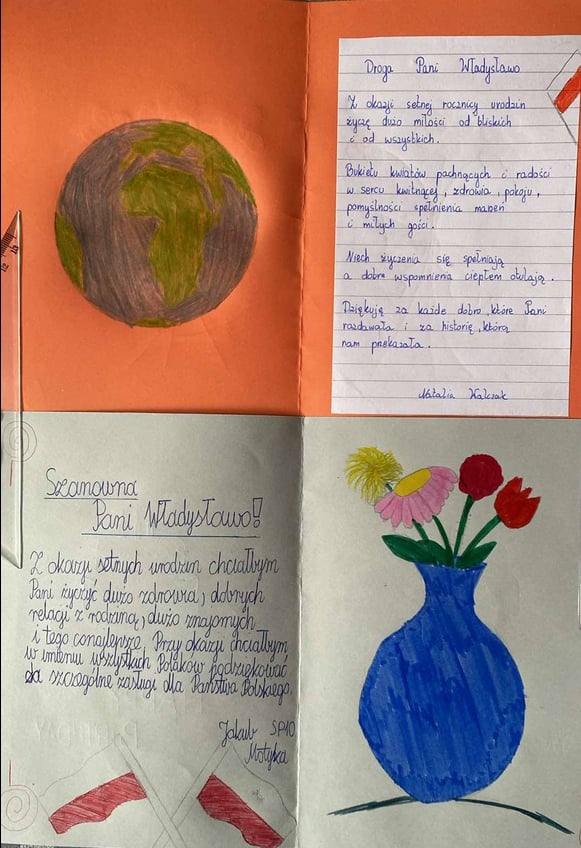 Droga Pani Władysławo
Z okazji setnej rocznicy urodzin
życzę dużo miłości od bliskich
i od wszystkich.
Bukietu kwiatów pachnących i radości
w sercu kwitnącej, zdrowia, pokoju,
pomyślności spełnienia marzeń
i miłych gości.
Niech życzenia się spełniają
a dobre wspomnienia ciepłem otulają.
Dziękuję za każde dobro, które Pani
rozdawała i za historię, którą
nam przekazała.
Natalia Walczak
Szanowna
Pani Władysławo!
Z okazji setnych urodzin chciałbym
Pani życzyć dużo zdrowia, dobrych
relacji z rodziną, dużo znajomych
i tego conajlepsze. Przy okazji chciałbym
w imieniu wszystkich Polaków podziękować
za szczególne zasługi dla Państwa Polskiego.
Jakub SP10
Motyka